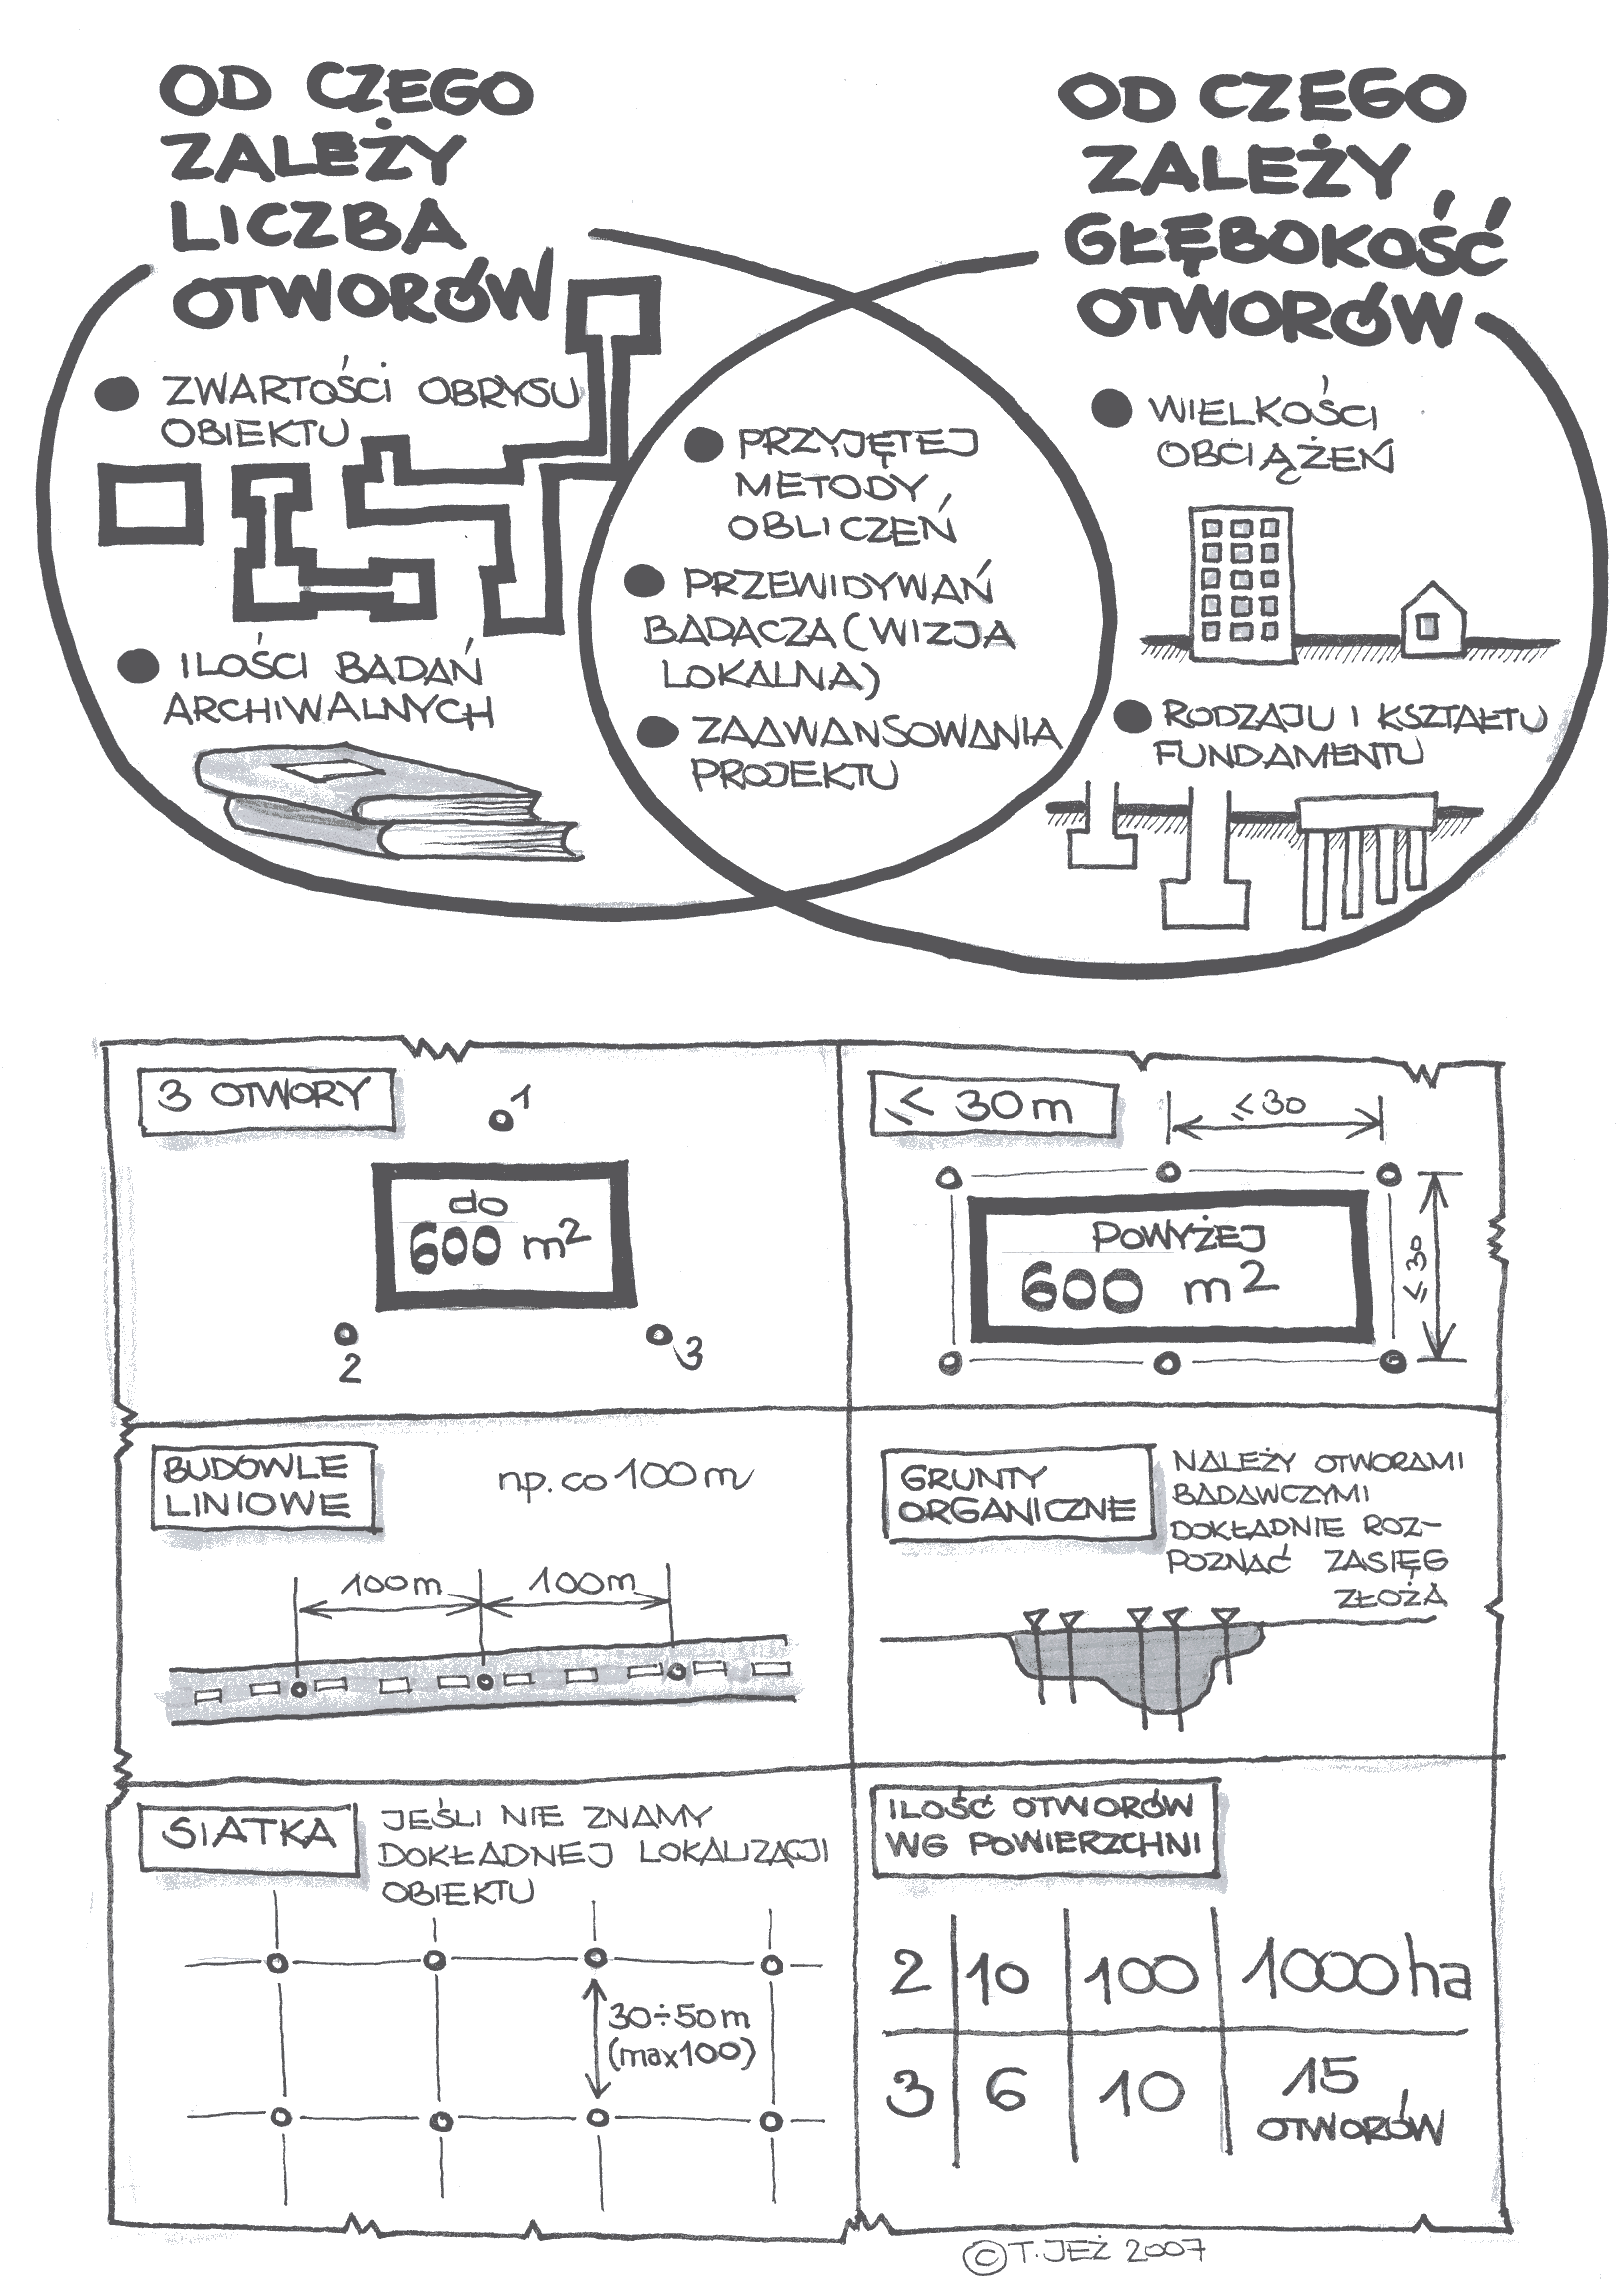 OD CZEGO
ZALEŻY
LICZBA
OTWORÓW
ZWARTOŚCI OBRYSU
OBIEKTU
ILOŚCI BADAŃ
ARCHIWALNYCH
PRZYJĘTEJ
METODY
OBLICZEŃ
PRZEWIDYWAŃ
BADACZA (WIZJA
LOKALNA)
ZAAWANSOWANIA
PROJEKTU
OD CZEGO
ZALEŻY
GŁĘBOKOŚĆ
OTWORÓW
WIELKOŚCI
OBCIĄŻEŃ
RODZAJU I KSZTAŁTU
FUNDAMENTU
3 OTWORY
1
do
600 m²
2
3
≤ 30m
≤30
POWYŻEJ
600 m²
≤30
BUDOWLE
LINIOWE
np. co 100m
100m 100m
GRUNTY
ORGANICZNE
NALEŻY OTWORAMI
BADAWCZYMI
DOKŁADNIE ROZ-
POZNAĆ ZASIĘG
ZŁOŻA
SIATKA
JEŚLI NIE ZNAMY
DOKŁADNEJ LOKALIZACJI
OBIEKTU
30÷50m
(max100)
ILOŚĆ OTWORÓW
WG POWIERZCHNI
2 10 100 1000ha
3 6 10 15
OTWORÓW
© T. JEŻ 2007